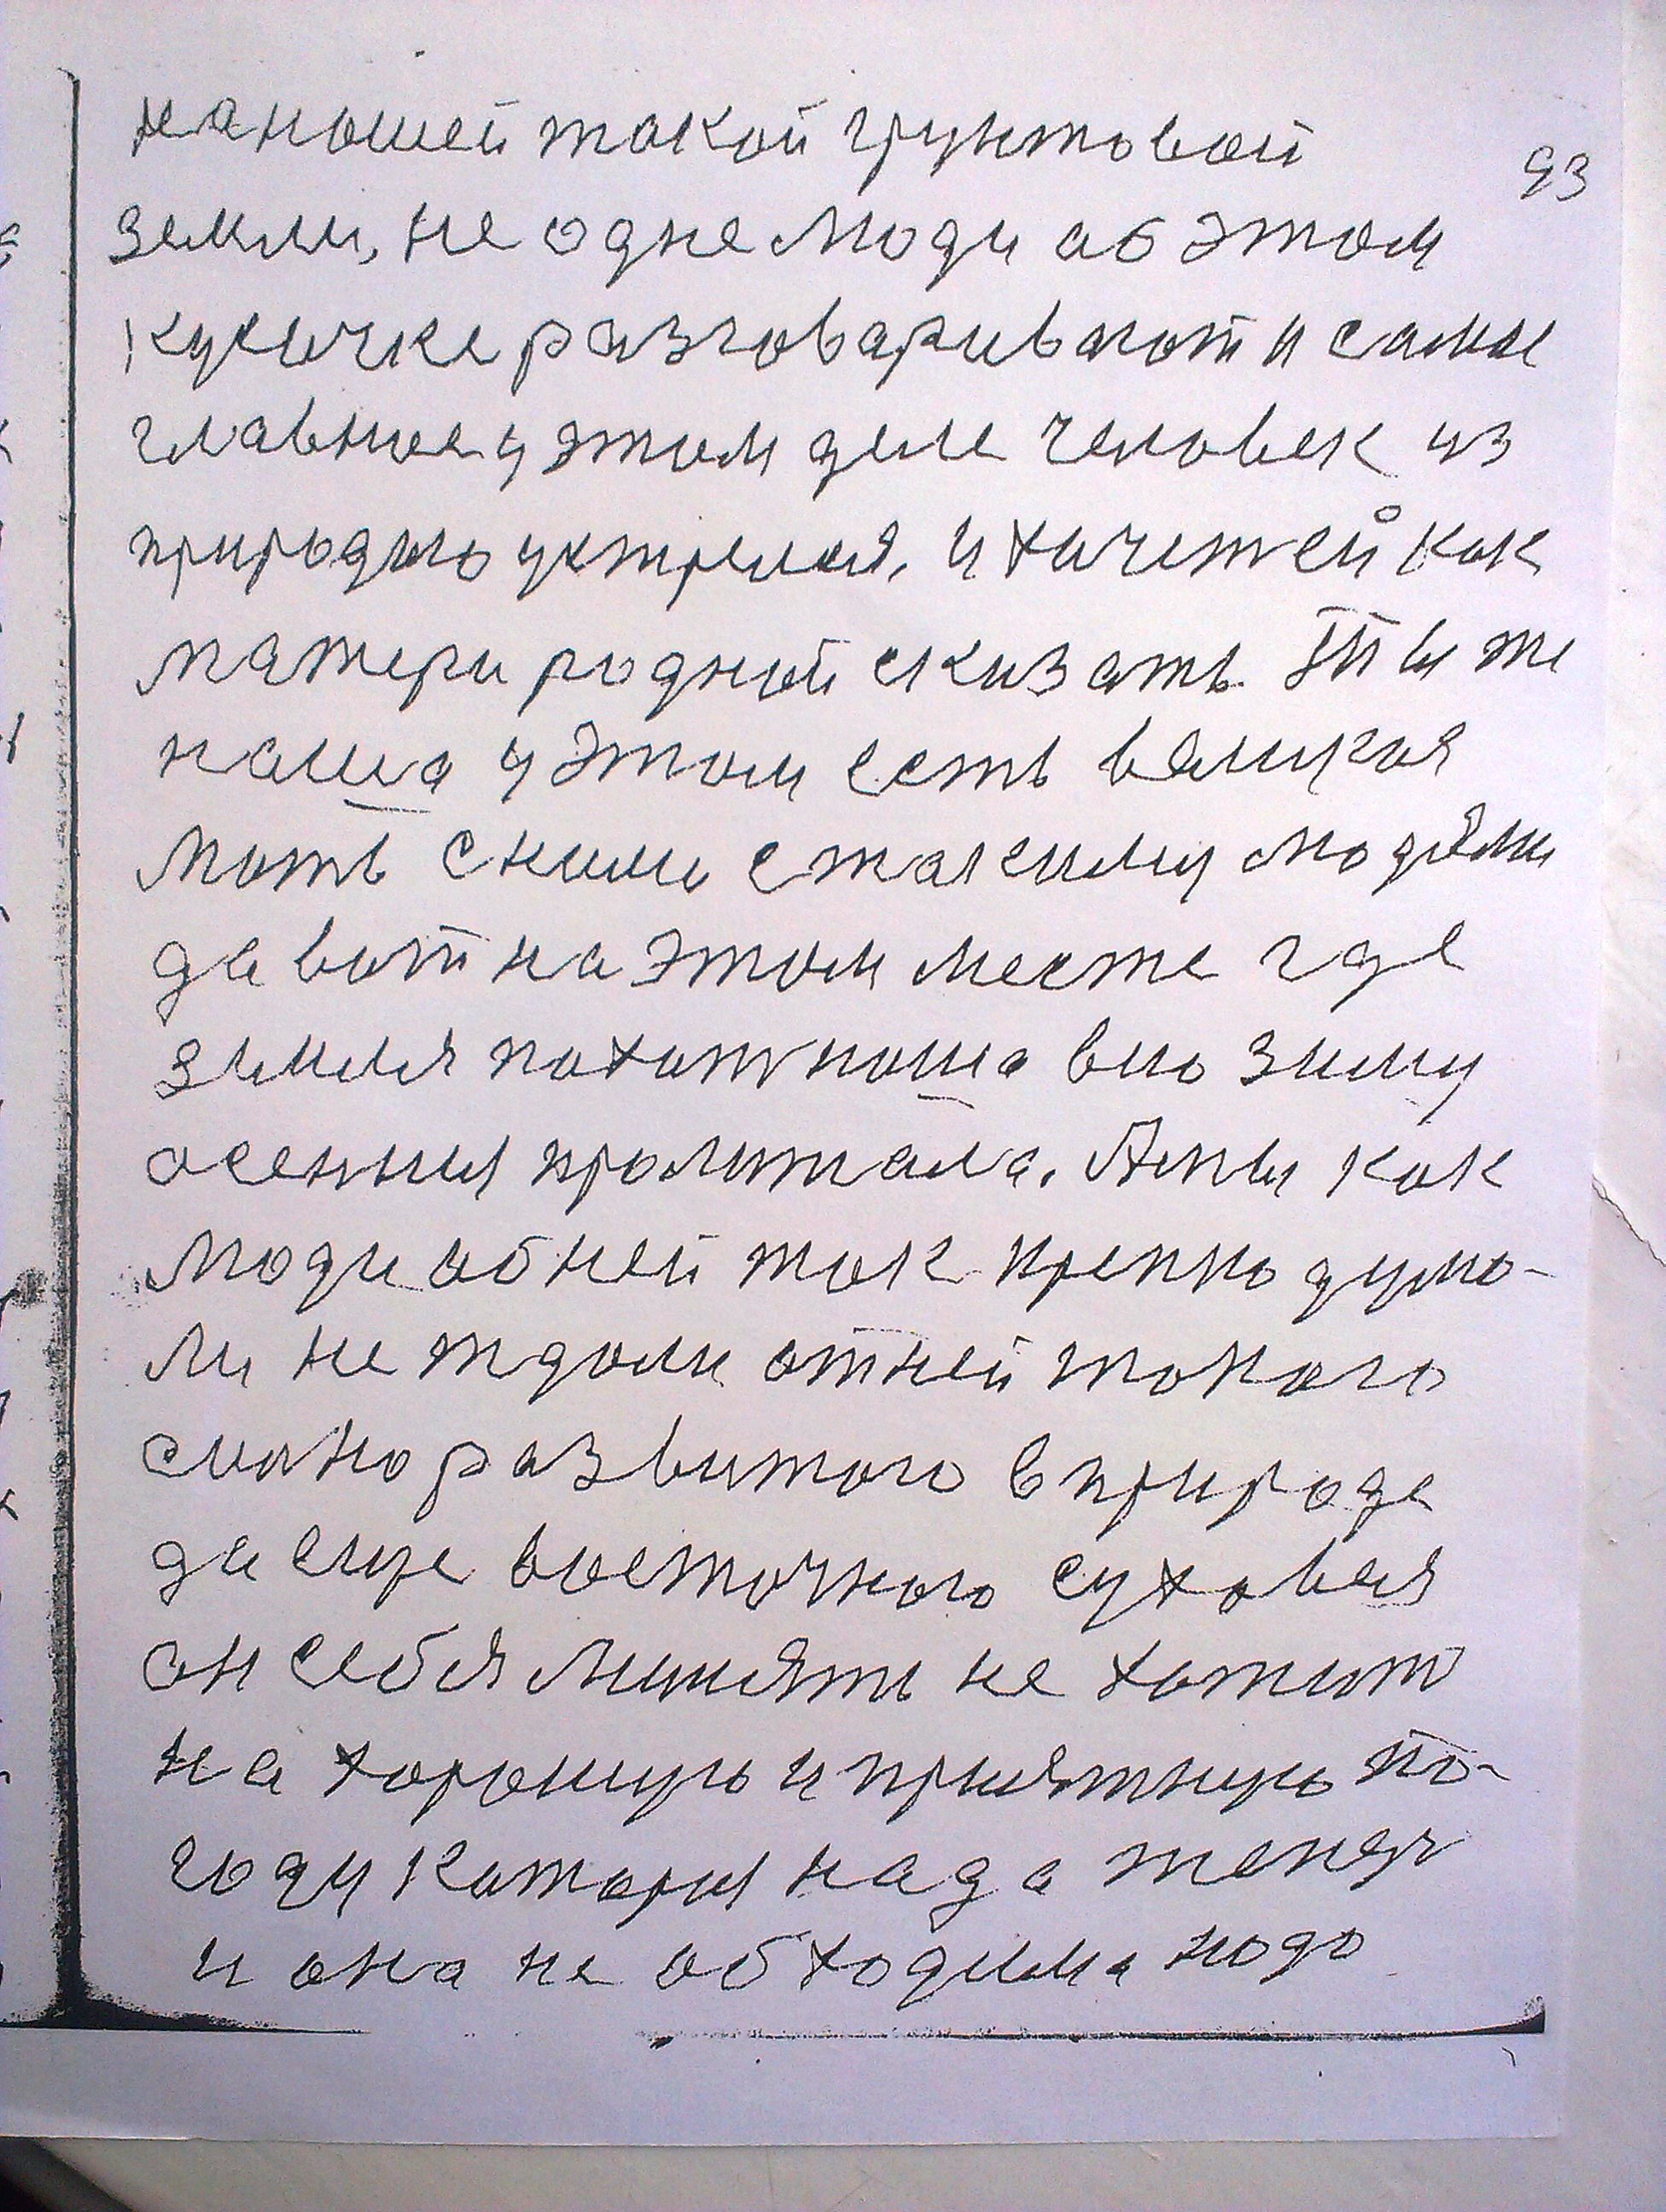 на нашей такой грунтовой
93
земли, не одне люди аб этом
кусычке разговаривают и самое
главное у этом деле человек из
природою устрелся, и хачет ей как
матери родной сказать. Ты же
наша у этом есть великая
мать с ними с такими людями
да вот на этом месте где
земля пахотноша всю зиму
осенния пролижала. А мы как
люди об ней так крепко дума-
ли не ждали от ней такого
сильно развитого в природе
да еще восточного суховея
он себя минять не хотит
на хорошую и приятную по-
году каторыя нада
и она не обходима нодо